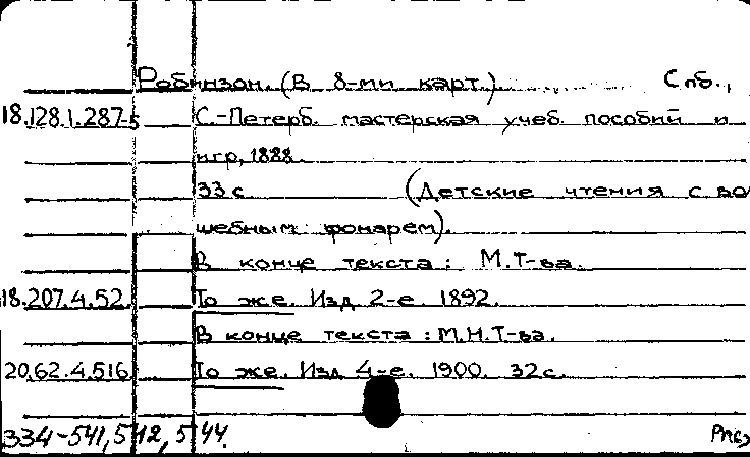 Робинзон. (В 8-ми карт.) Спб.,
18.128.1.287-5 С.-Петерб. мастерская учеб. пособий и
игр, 1888.
33 с. (Детские чтения с вол
шебным фонарем).
В конце текста: М.Т-ва.
18.207.4.52. То же. Изд. 2-е. 1892.
В конце текста: М.Н.Т-ва.
20.62.4.516 То же. Изд. 4-е. 1900. 32 с.
334-541, 542, 544.